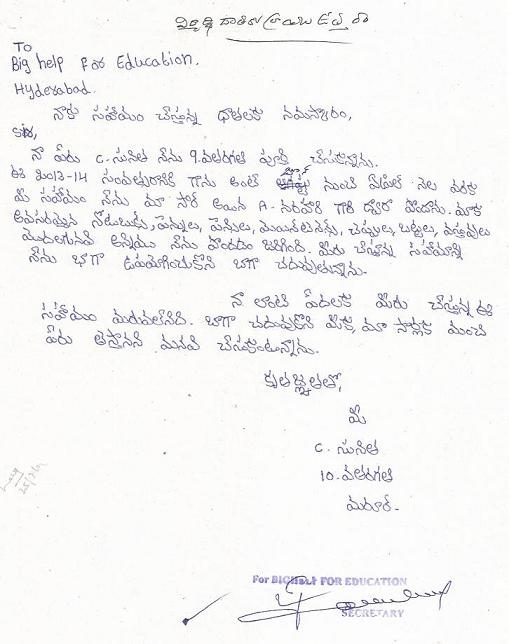 To
Big help For Education.
Hyderabad.
నాకు సహాయం చేస్తున్న ధాతలకు నమస్కారం,
Sir,
నా పేరు C. సునిత నేను 9.వతరగతి పూర్తి చేసుకున్నాను.
ఈ 2013-14 సంవత్సరానికి గాను జూన్ నుంచి ఏప్రిల్ నెల వరకు
మీ సహాయం నేను మా సార్ అయిన A- నరహరి గారి ద్వారా పొందాను. మాకు
అవసరమైన నోటుబుక్స్, పెన్నులు, పెన్సిలు, చెప్పులు, బట్టలు, వస్తువులు
మొదలగునవి అన్నియు నేను పొందడం జరిగింది. మీరు చేస్తున్న సహాయాన్ని
నేను భాగా ఉపయోగించుకొని బాగా చదువుతున్నాను.
నా లాంటి పేదలకు మీరు చేస్తున్న ఈ
సహాయం మరువలేనిది. బాగా చదువుకొని మీకు, మా సార్లకు మంచి
పేరు తెస్తానని మనవి చేసుకుంటున్నాను.
కృతజ్ఞతతో,
మీ
C. సునిత
10. వతరగతి
మరూర్-
For BIGHELP FOR EDUCATION
SECRETARY